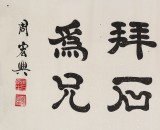 拜石
為兄
周宏興